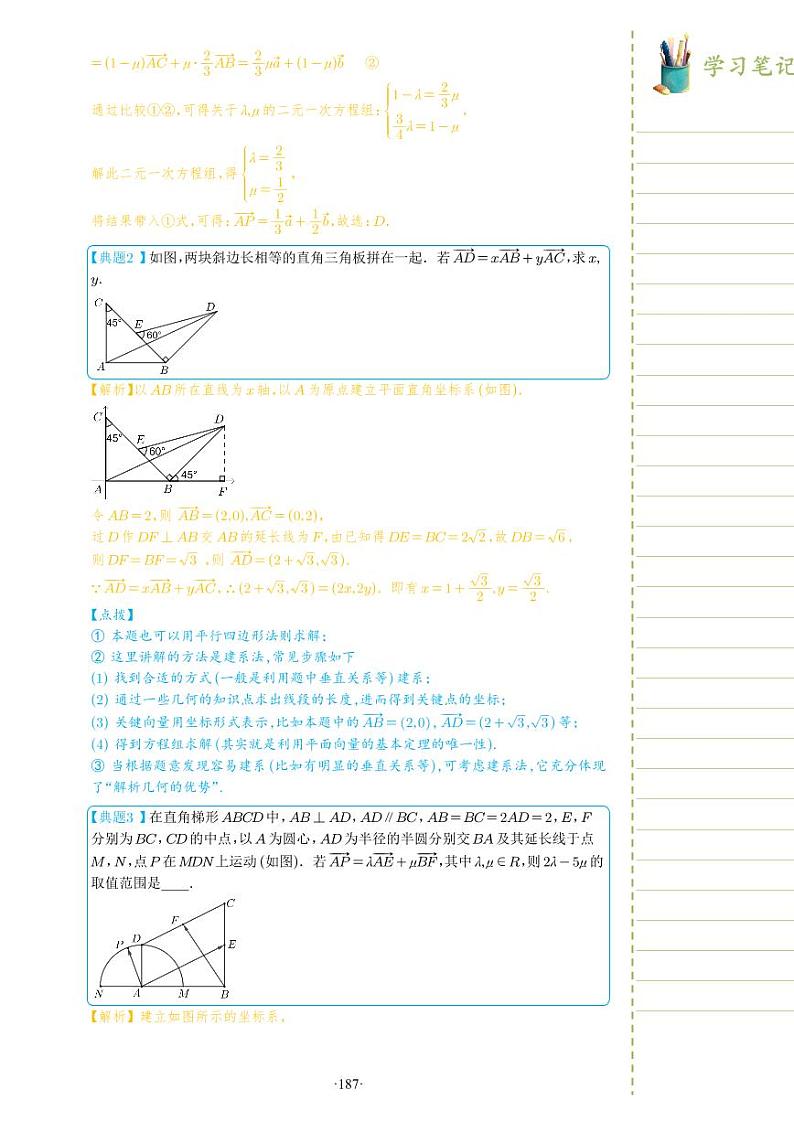 =(1-μ)AC+μ·2/3AB=2/3μa+(1-μ)b ②
学习笔记
通过比较①②,可得关于λ,μ的二元一次方程组:{1-λ=2/3μ 3/4λ=1-μ,
解此二元一次方程组,得{λ=2/3 μ=1/2,
将结果带入①式,可得:AP=1/3a+1/2b,故选:D.
【典题2】如图,两块斜边长相等的直角三角板拼在一起. 若AD=xAB+yAC,求x,
y.
C
D
45°
E
60°
A
B
【解析】以AB所在直线为x轴,以A为原点建立平面直角坐标系(如图).
C
D
45°
E
60°
45°
A
B
F
令AB=2,则 AB=(2,0),AC=(0,2),
过D作DF⊥AB交AB的延长线为F,由已知得DE=BC=2√2,故DB=√6,
则DF=BF=√3 ,则 AD=(2+√3,√3).
∵AD=xAB+yAC,∴(2+√3,√3)=(2x,2y). 即有x=1+√3/2,y=√3/2.
【点拨】
① 本题也可以用平行四边形法则求解;
② 这里讲解的方法是建系法,常见步骤如下
(1) 找到合适的方式(一般是利用题中垂直关系等)建系;
(2) 通过一些几何的知识点求出线段的长度,进而得到关键点的坐标;
(3) 关键向量用坐标形式表示,比如本题中的AB=(2,0), AD=(2+√3,√3)等;
(4) 得到方程组求解(其实就是利用平面向量的基本定理的唯一性).
③ 当根据题意发现容易建系(比如有明显的垂直关系等),可考虑建系法,它充分体现
了“解析几何的优势”.
【典题3】在直角梯形ABCD中,AB⊥AD,AD∥BC,AB=BC=2AD=2,E,F
分别为BC,CD的中点,以A为圆心,AD为半径的半圆分别交BA及其延长线于点
M,N,点P在MDN上运动(如图). 若AP=λAE+μBF,其中λ,μ∈R,则2λ-5μ的
取值范围是____.
C
F
P
D
E
N
A
M
B
【解析】建立如图所示的坐标系,
·187·